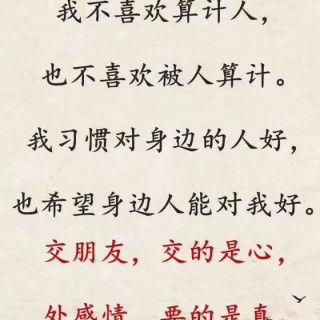 我不喜欢算计人，
也不喜欢被人算计。
我习惯对身边的人好，
也希望身边人能对我好。
交朋友，交的是心，
处感情，要的是真，